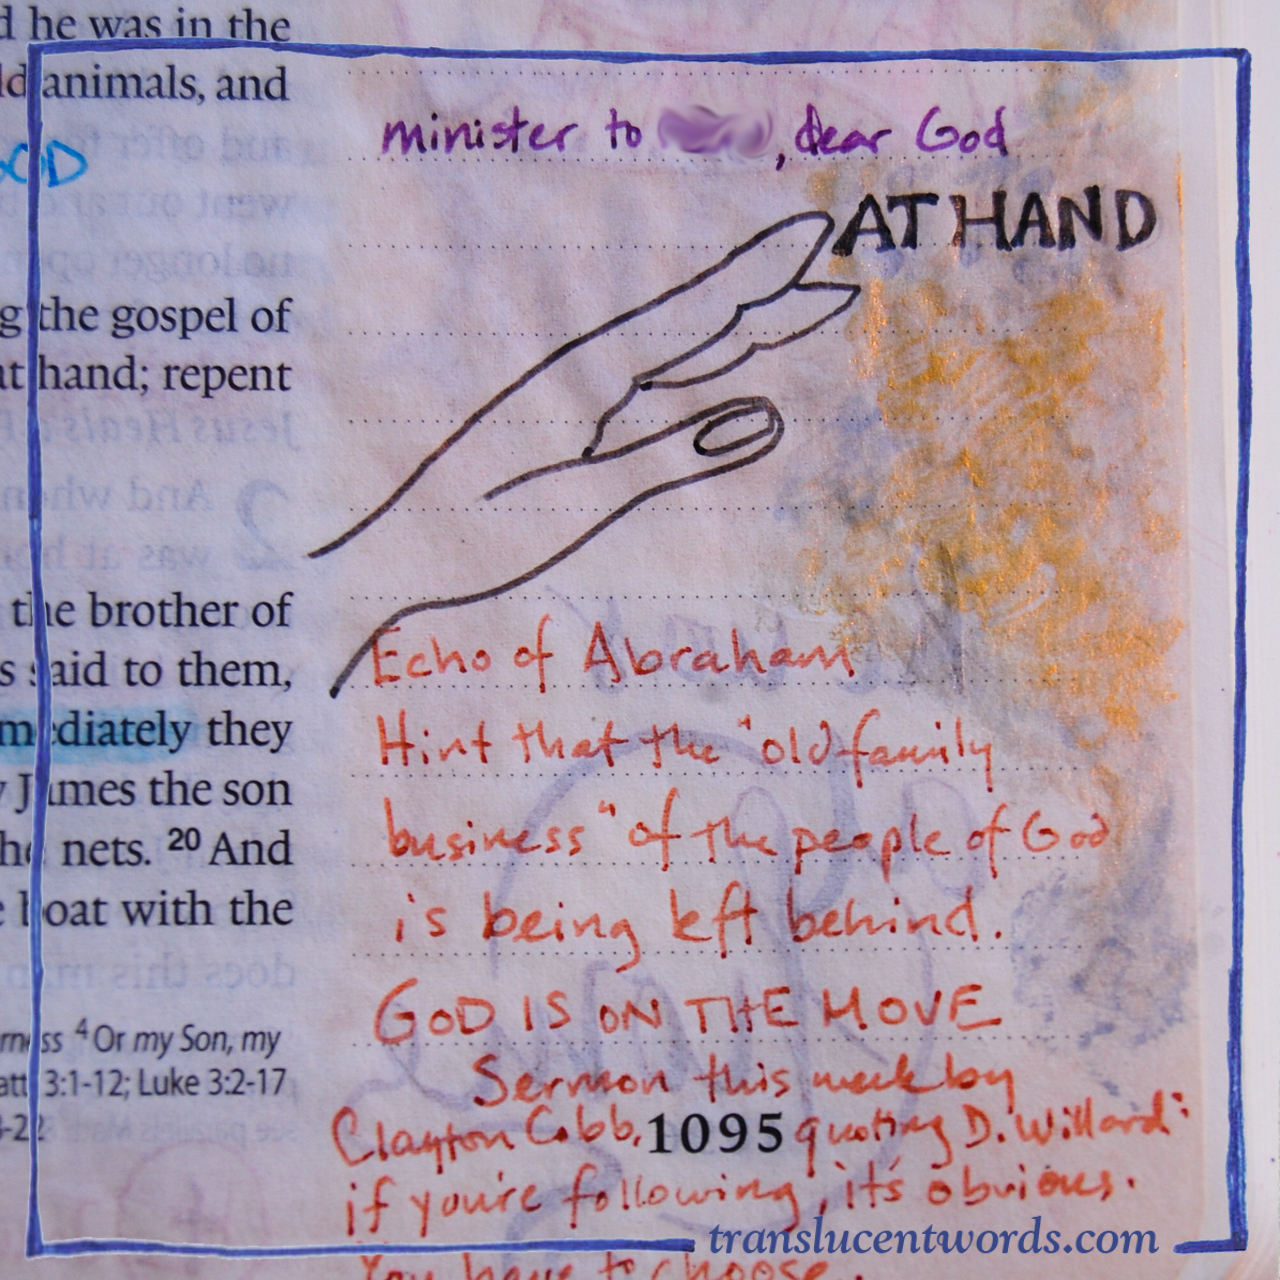 d he was in the
ld animals, and
OD
g the gospel of
at hand; repent
the brother of
s said to them,
mediately they
y James the son
he nets. 20 And
e boat with the
rness 4 Or my Son, my
att 3:1-12; Luke 3:2-17
3-22
minister to , dear God
AT HAND
Echo of Abraham
Hint that the "old family
business" of the people of God
is being left behind.
GOD IS ON THE MOVE
Sermon this week by
Clayton Cobb, quoting D. Willard:
1095
if you're following, it's obvious.
You have to choose.
translucentwords.com